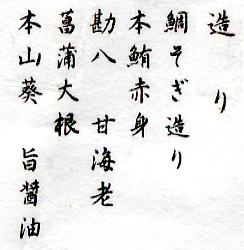 造り
鯛そぎ造り
本鮪赤身
勘八 甘海老
菖蒲大根
本山葵 旨醤油